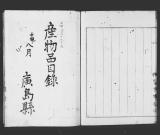 産物品目録
八月
廣島縣